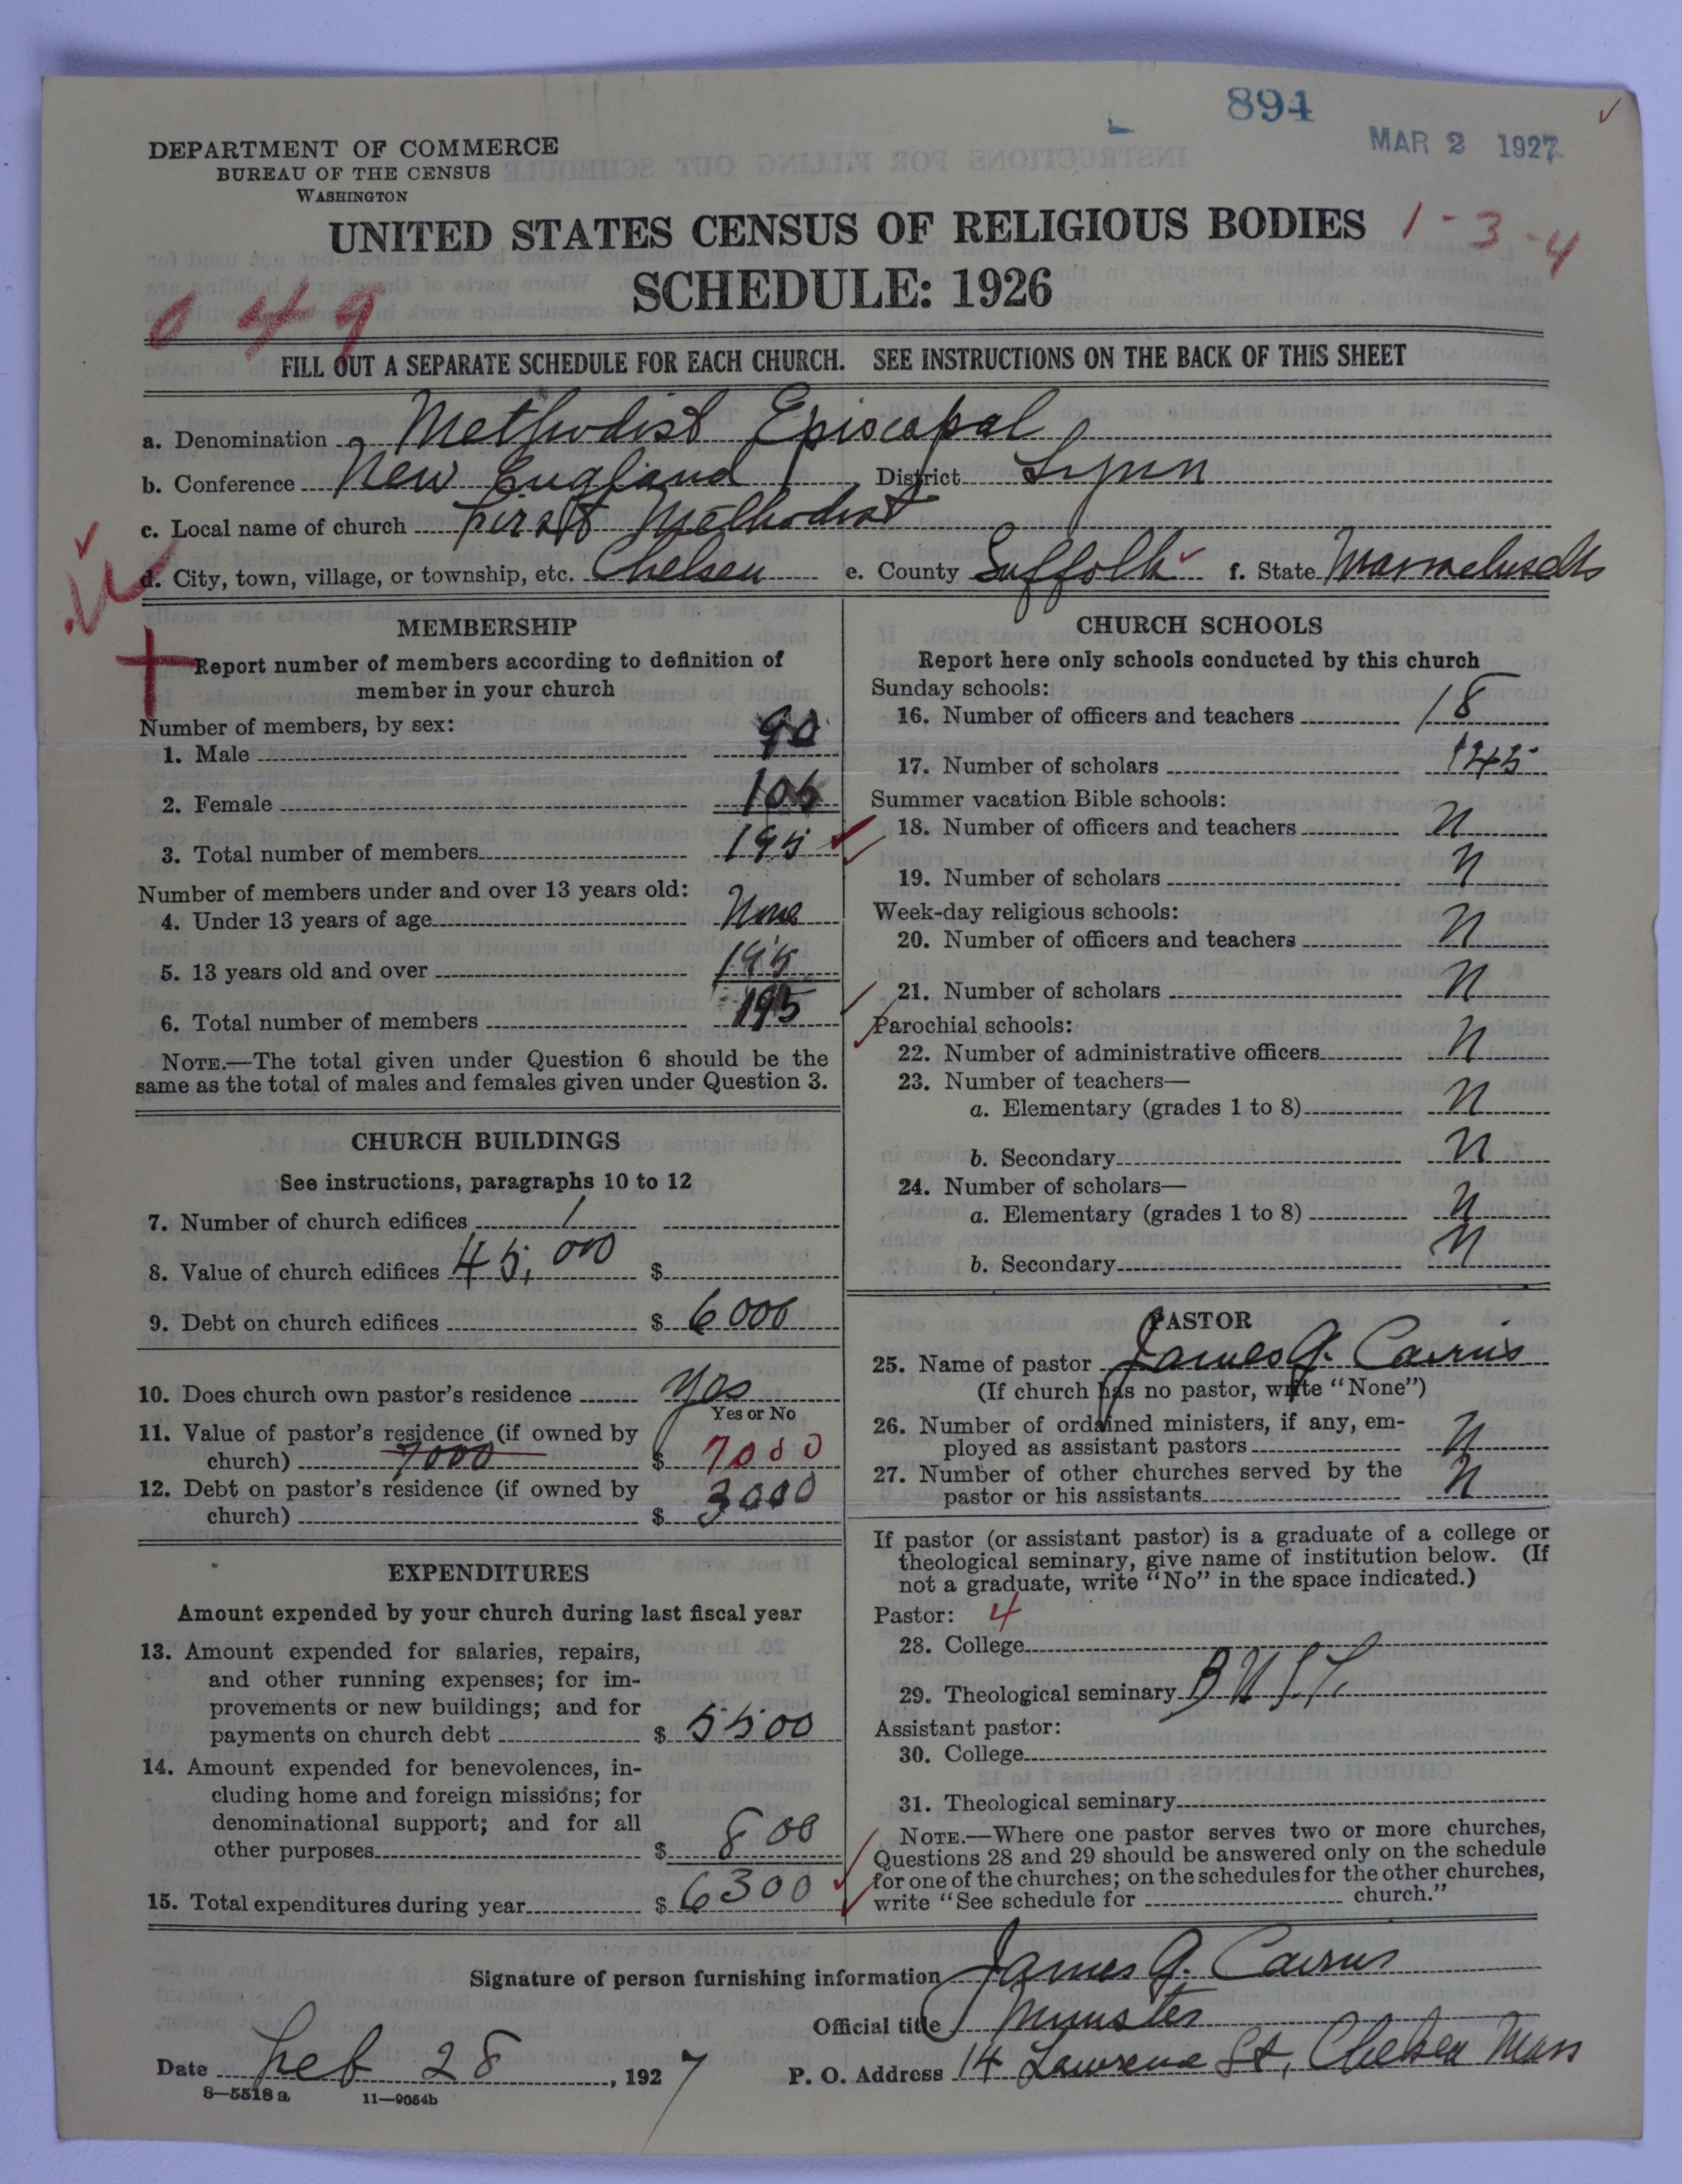 894
MAR 2 1927
DEPARTMENT OF COMMERCE
BUREAU OF THE CENSUS
WASHINGTON
UNITED STATES CENSUS OF RELIGIOUS BODIES
1-3-4
SCHEDULE: 1926
049
FILL OUT A SEPARATE SCHEDULE FOR EACH CHURCH. SEE INSTRUCTIONS ON THE BACK OF THIS SHEET
a. Denomination Methodist Episcopal
b. Conference New England District Lynn
c. Local name of church First Methodist
d. City, town, village, or township, etc. Chelsea e. County Suffolk f. State Massachusetts
MEMBERSHIP
Report number of members according to definition of
member in your church
Number of members, by sex:
1. Male 90
2. Female 105
3. Total number of members 195
Number of members under and over 13 years old:
4. Under 13 years of age None
5. 13 years old and over 195
6. Total number of members 195
NOTE.—The total given under Question 6 should be the
same as the total of males and females given under Question 3.
CHURCH BUILDINGS
See instructions, paragraphs 10 to 12
7. Number of church edifices 1
8. Value of church edifices 45,000 $
9. Debt on church edifices $ 6000
10. Does church own pastor's residence Yes
Yes or No
11. Value of pastor's residence (if owned by
church) 7000 $ 7000
12. Debt on pastor's residence (if owned by
church) $ 3000
EXPENDITURES
Amount expended by your church during last fiscal year
13. Amount expended for salaries, repairs,
and other running expenses; for im-
provements or new buildings; and for
payments on church debt $ 5500
14. Amount expended for benevolences, in-
cluding home and foreign missions; for
denominational support; and for all
other purposes $ 800
15. Total expenditures during year $ 6300
CHURCH SCHOOLS
Report here only schools conducted by this church
Sunday schools:
16. Number of officers and teachers 18
17. Number of scholars 145
Summer vacation Bible schools:
18. Number of officers and teachers N
19. Number of scholars N
Week-day religious schools:
20. Number of officers and teachers N
21. Number of scholars N
Parochial schools:
22. Number of administrative officers N
23. Number of teachers—
a. Elementary (grades 1 to 8) N
b. Secondary N
24. Number of scholars—
a. Elementary (grades 1 to 8) N
b. Secondary N
PASTOR
25. Name of pastor James G. Cairns
(If church has no pastor, write "None")
26. Number of ordained ministers, if any, em-
ployed as assistant pastors N
27. Number of other churches served by the
pastor or his assistants N
If pastor (or assistant pastor) is a graduate of a college or
theological seminary, give name of institution below. (If
not a graduate, write "No" in the space indicated.)
Pastor: 4
28. College
29. Theological seminary B U S. T.
Assistant pastor:
30. College
31. Theological seminary
NOTE.—Where one pastor serves two or more churches,
Questions 28 and 29 should be answered only on the schedule
for one of the churches; on the schedules for the other churches,
write "See schedule for church."
Signature of person furnishing information James G. Cairns
Official title Minister
Date Feb 28, 1927 P. O. Address 14 Lawrence St, Chelsea Mass
8—5518 a 11—9054b